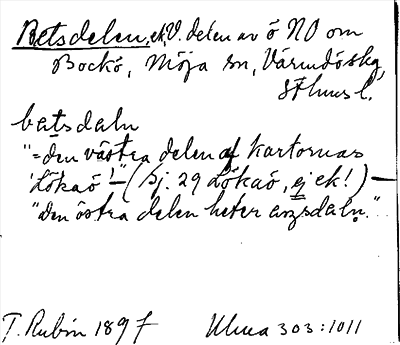 Betsdelen, ek, V. delen av ö NO om
Bockö, Möja sn, Värmdö skg,
Sthms l.
batsdaln
"=den västra delen af kartornas
'Lökaö'!" – (Sj. 29 Lökaö, ej ek!) –
"Den östra delen heter anzsdaln."
T. Rubin 1897 Ulma 303:1011